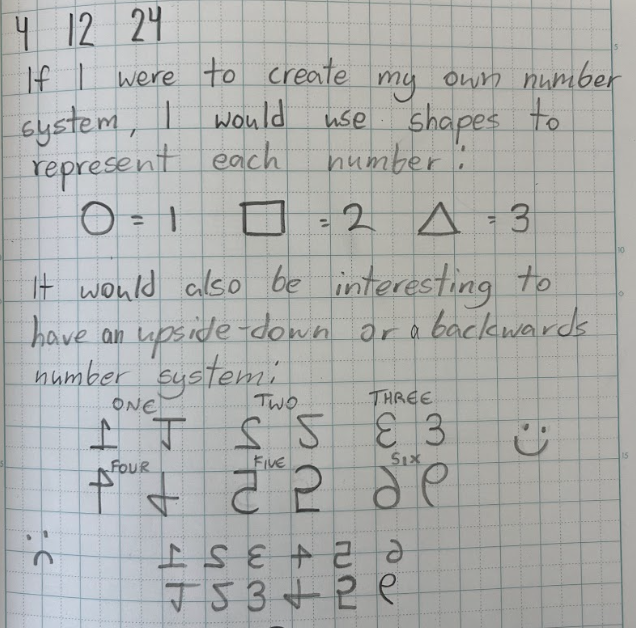 4 12 24
If I were to create my own number
system, I would use shapes to
represent each number:
○ = 1 □ = 2 △ = 3
It would also be interesting to
have an upside-down or a backwards
number system:
ONE TWO THREE
1 1 2 2 3 3
FOUR FIVE SIX
4 4 5 5 6 6
1 2 3 4 5 6
1 2 3 4 5 6